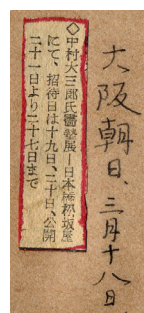 大阪朝日、三月十八日、
◇中村大三郎氏畵塾展―日本橋松坂屋
にて、招待日は十九日、二十日、公開
二十一日より二十七日まで